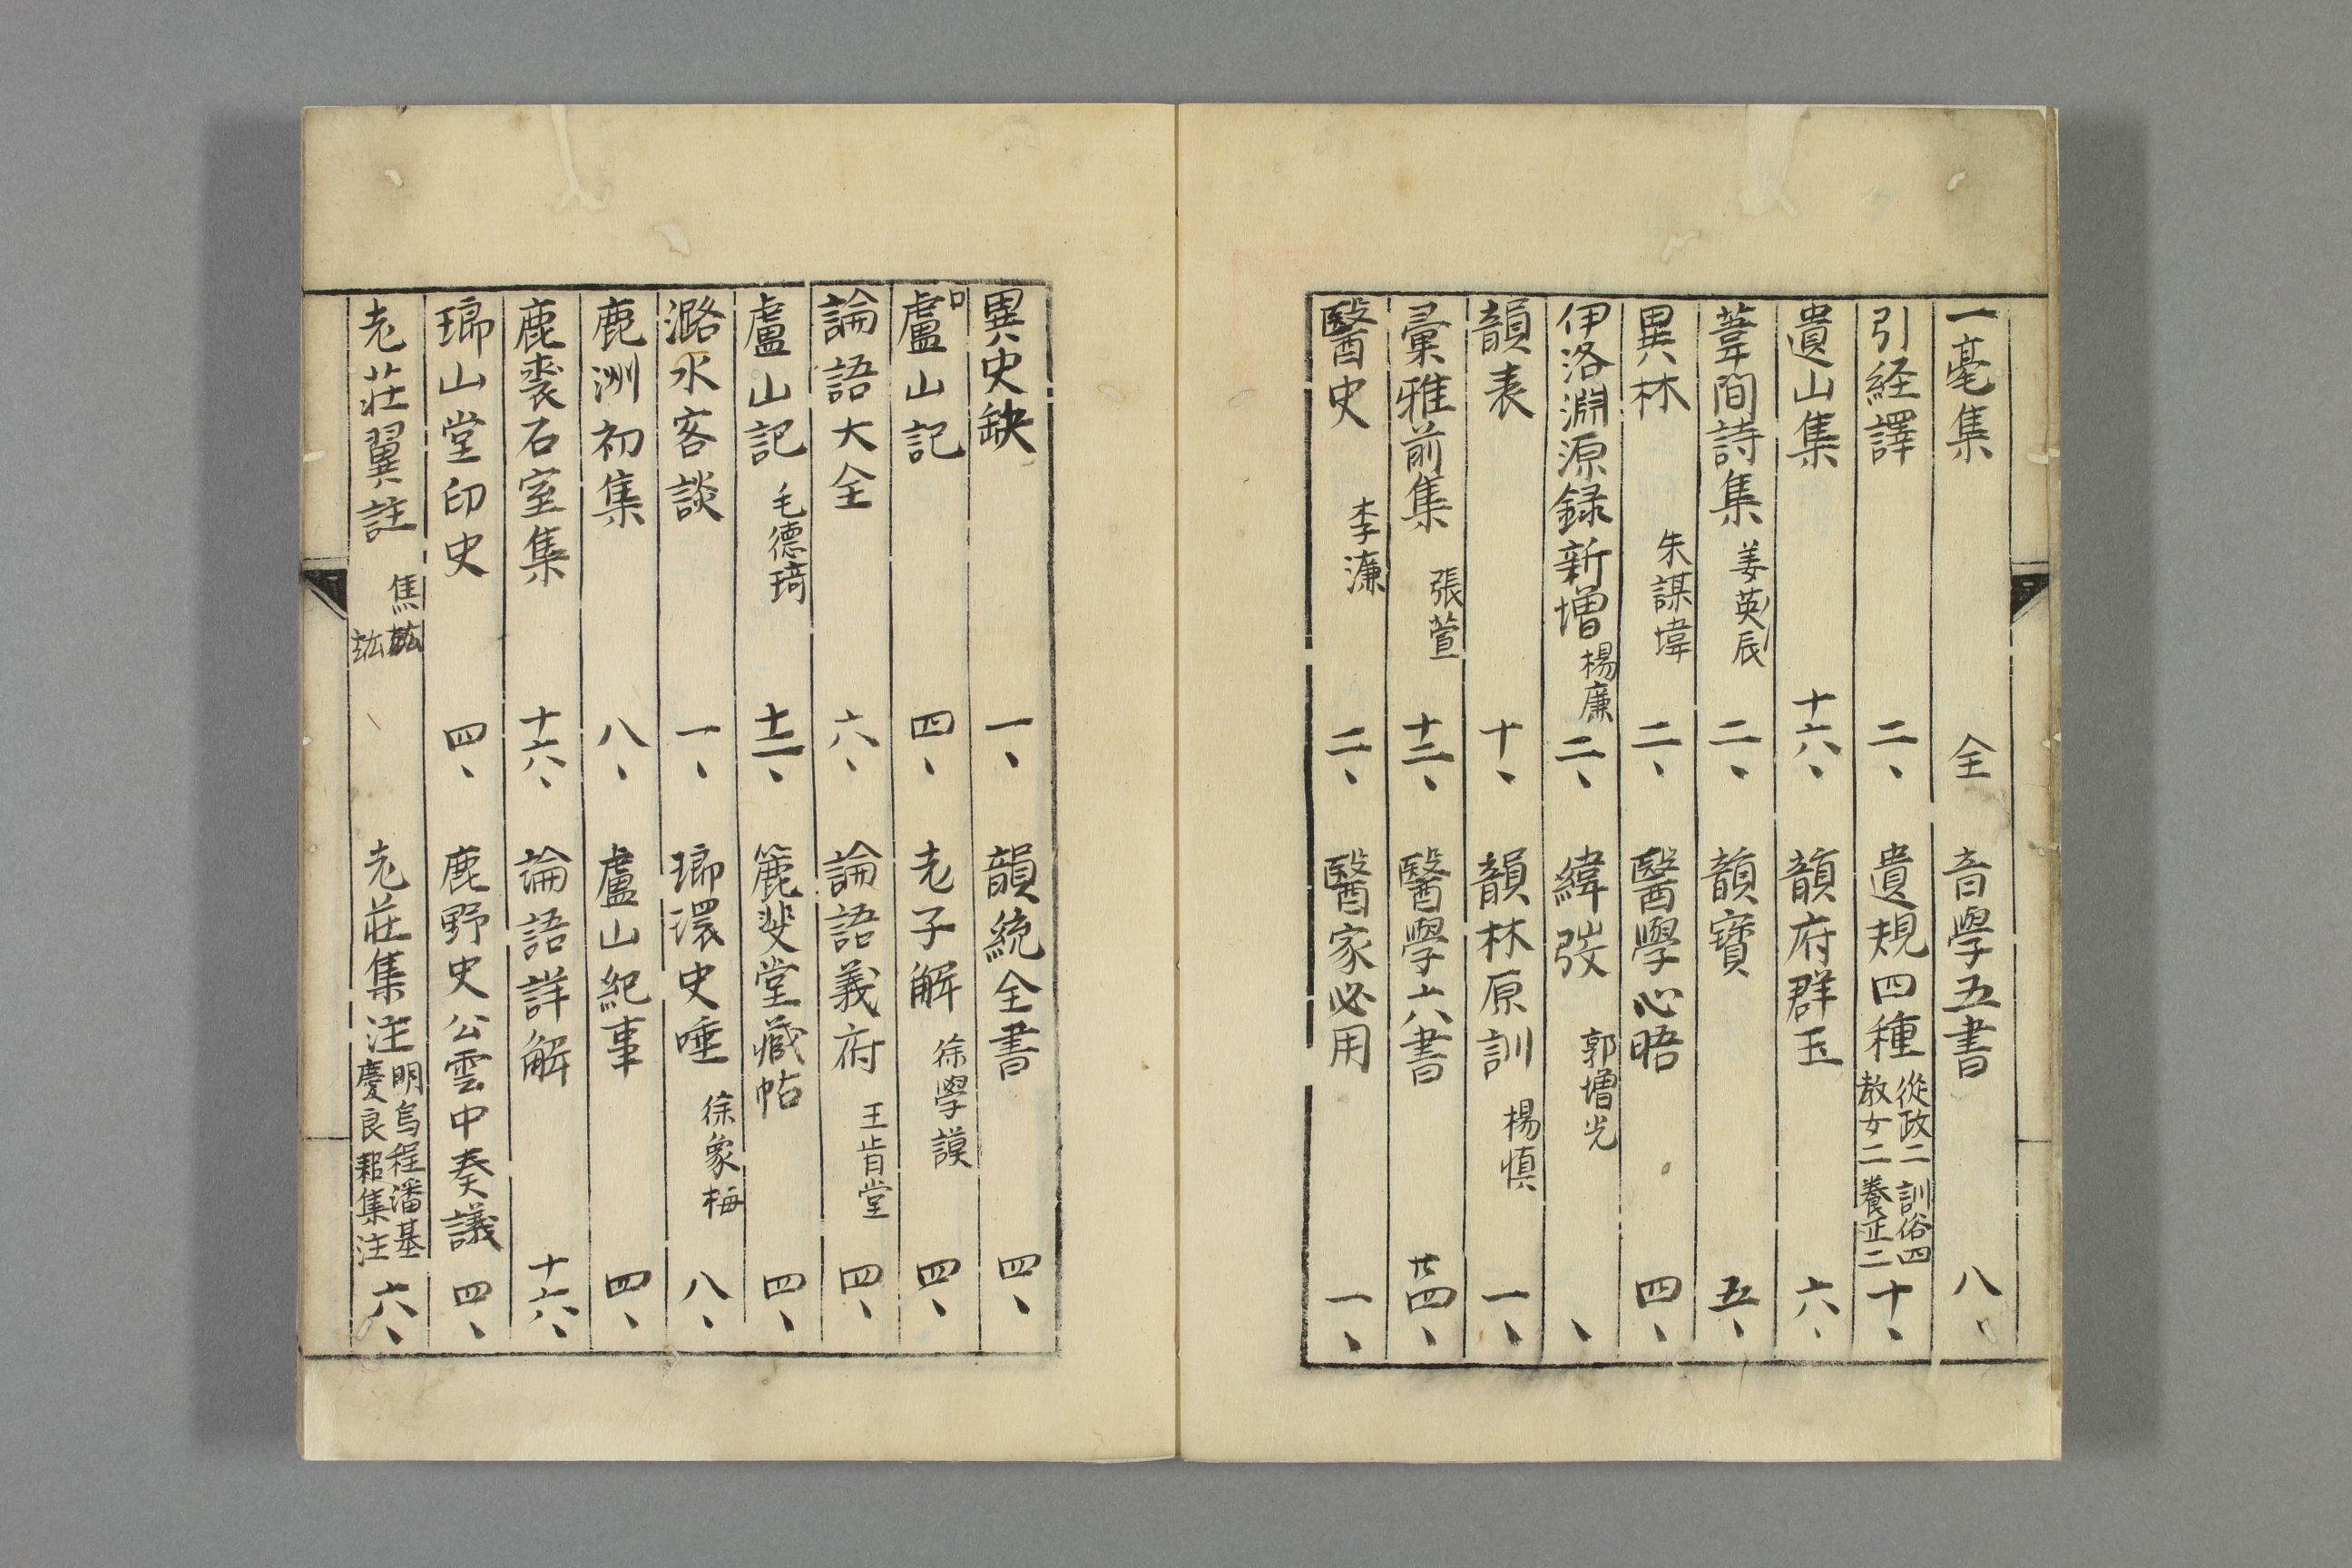 一毫集 全 音學五書 八、
引経譯 二、 遺規四種 從政二 訓俗四 教女二 養正二 十、
遺山集 十六、 韻府群玉 六、
葦間詩集 姜英辰 二、 韻寶 五、
異林 朱謀㙔 二、 醫學心晤 四、
伊洛淵源録新増 楊廉 二、 緯弢 郭増光 、
韻表 十、 韻林原訓 楊慎 一、
彙雅前集 張萱 十二、 醫學六書 廿四、
醫史 李濂 二、 醫家必用 一、
異史缺 一、 韻統全書 四、
盧山記 四、 老子解 徐學謨 四、
論語大全 六、 論語義府 王肯堂 四、
盧山記 毛德琦 十二、 簏斐堂藏帖 四、
潞水客談 一、 瑯環史唾 徐象梅 八、
鹿洲初集 八、 盧山紀事 四、
鹿裘石室集 十六、 論語詳解 十六、
瑯山堂印史 四、 鹿野史公雲中奏議 四、
老莊翼註 焦竑 老莊集注 明烏程潘基慶良耜集注 六、